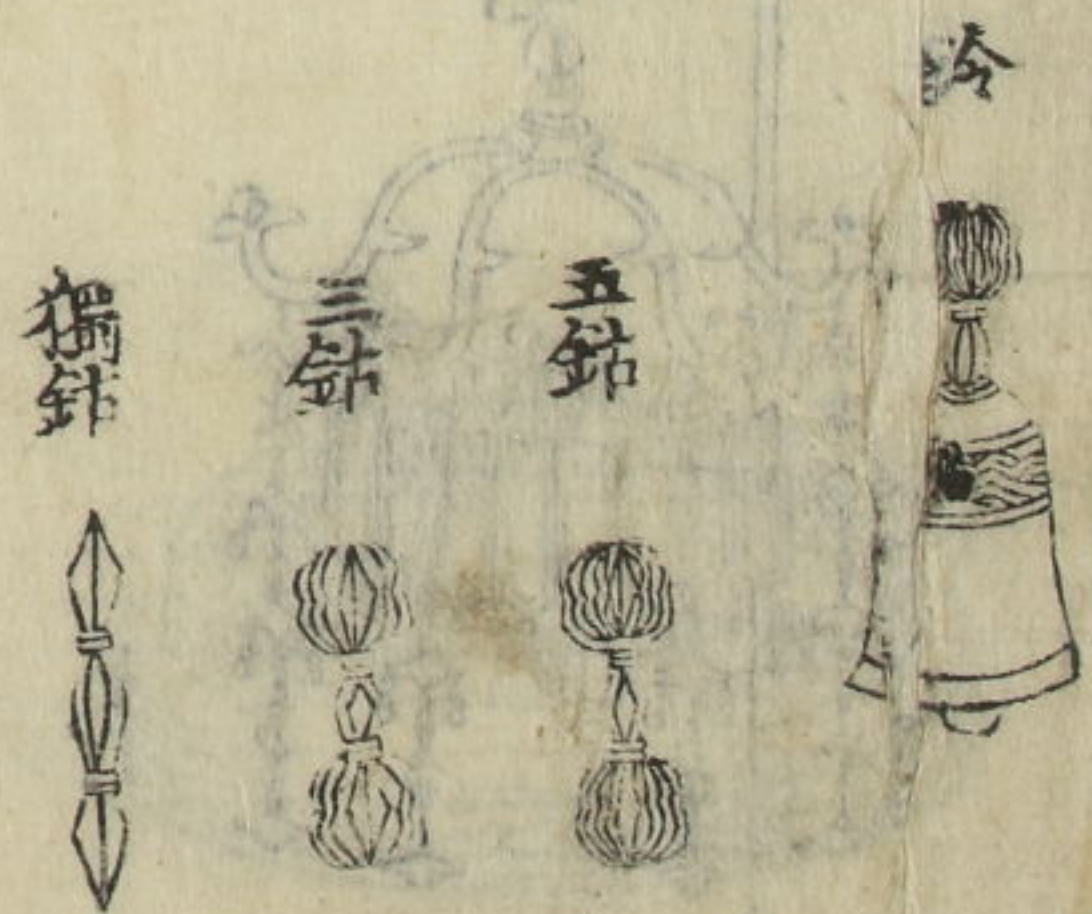 鈴
五鈷
三鈷
獨鈷